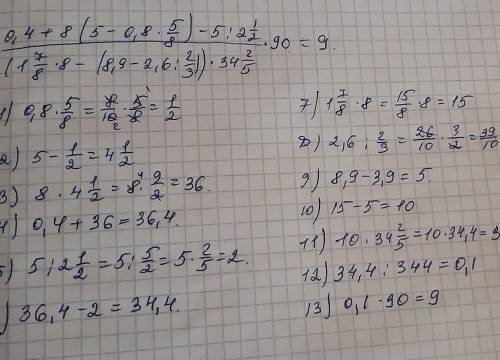 0,4 + 8 (5 − 0,8 · 5/8) − 5 : 2 1/2
(1 7/8 · 8 − (8,9 − 2,6 : 2/3)) · 34 2/5
· 90 = 9.
1) 0,8 · 5/8 = 8/10 · 5/8 = 1/2
2) 5 − 1/2 = 4 1/2
3) 8 · 4 1/2 = 8 · 9/2 = 36.
4) 0,4 + 36 = 36,4.
5) 5 : 2 1/2 = 5 : 5/2 = 5 · 2/5 = 2.
) 36,4 − 2 = 34,4.
7) 1 7/8 · 8 = 15/8 · 8 = 15
8) 2,6 : 2/3 = 26/10 · 3/2 = 39/10
9) 8,9 − 3,9 = 5.
10) 15 − 5 = 10
11) 10 · 34 2/5 = 10 · 34,4 = 3
12) 34,4 : 344 = 0,1
13) 0,1 · 90 = 9